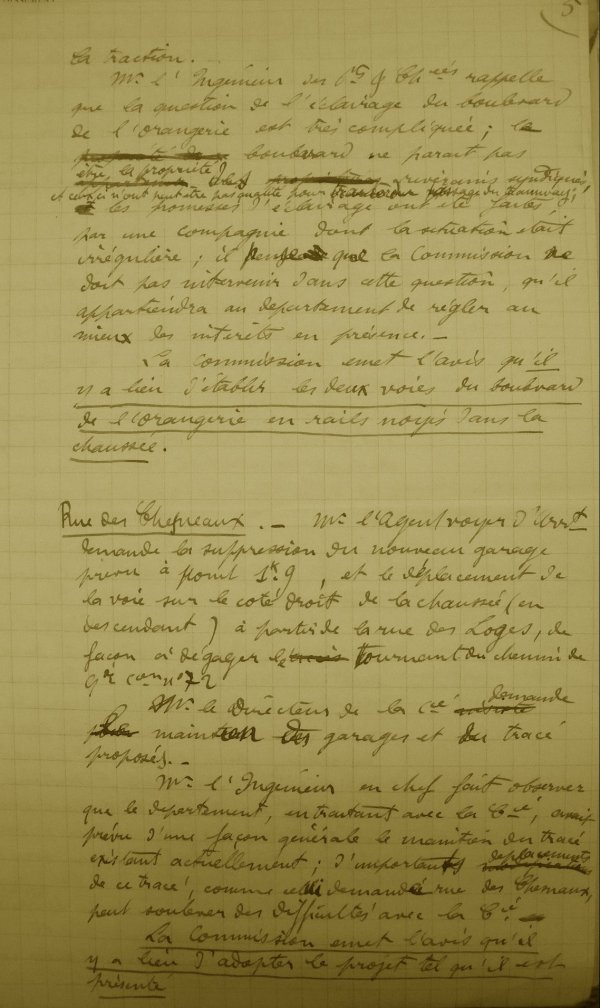 5
la traction.
Mr l'Ingénieur des Pts & Chées rappelle
que la question de l'éclairage du boulevard
de l'orangerie est très compliquée; le
boulevard ne parait pas
être, la propriété des riverains syndiqués
et ceux-ci n'ont peut être pas qualité pour passage du tramway;
les promesses d'éclairage ont été faites
par une compagnie dont la situation était
irrégulière; il pense que la Commission ne
doit pas intervenir dans cette question, qu'il
appartiendra au département de régler au
mieux des intérêts en présence. -
La commission emet l'avis qu'il
y a lieu d'établir les deux voies du boulevard
de l'Orangerie en rails noyés dans la
chaussée.
Rue des Chesneaux. - Mr l'Agent voyer d'Arrt
demande la suppression du nouveau garage
prévu à point 1k.9, et le déplacement de
la voie sur le coté droit de la chaussée (en
descendant) à partir de la rue des Loges, de
façon à dégager le tournant du chemin de
Gde Con n° 72
Mr le Directeur de la Cie demande
maintien des garages et du tracé
proposés. -
Mr l'Ingénieur en chef fait observer
que le département, en traitant avec la Cie, avait
prévu d'une façon générale le maintien du tracé
existant actuellement; d'importants déplacements
de ce tracé, comme celui demandé rue des Chesneaux,
peut soulever des difficultés avec la Cie
La Commission emet l'avis qu'il
y a lieu d'adopter le projet tel qu'il est
présenté